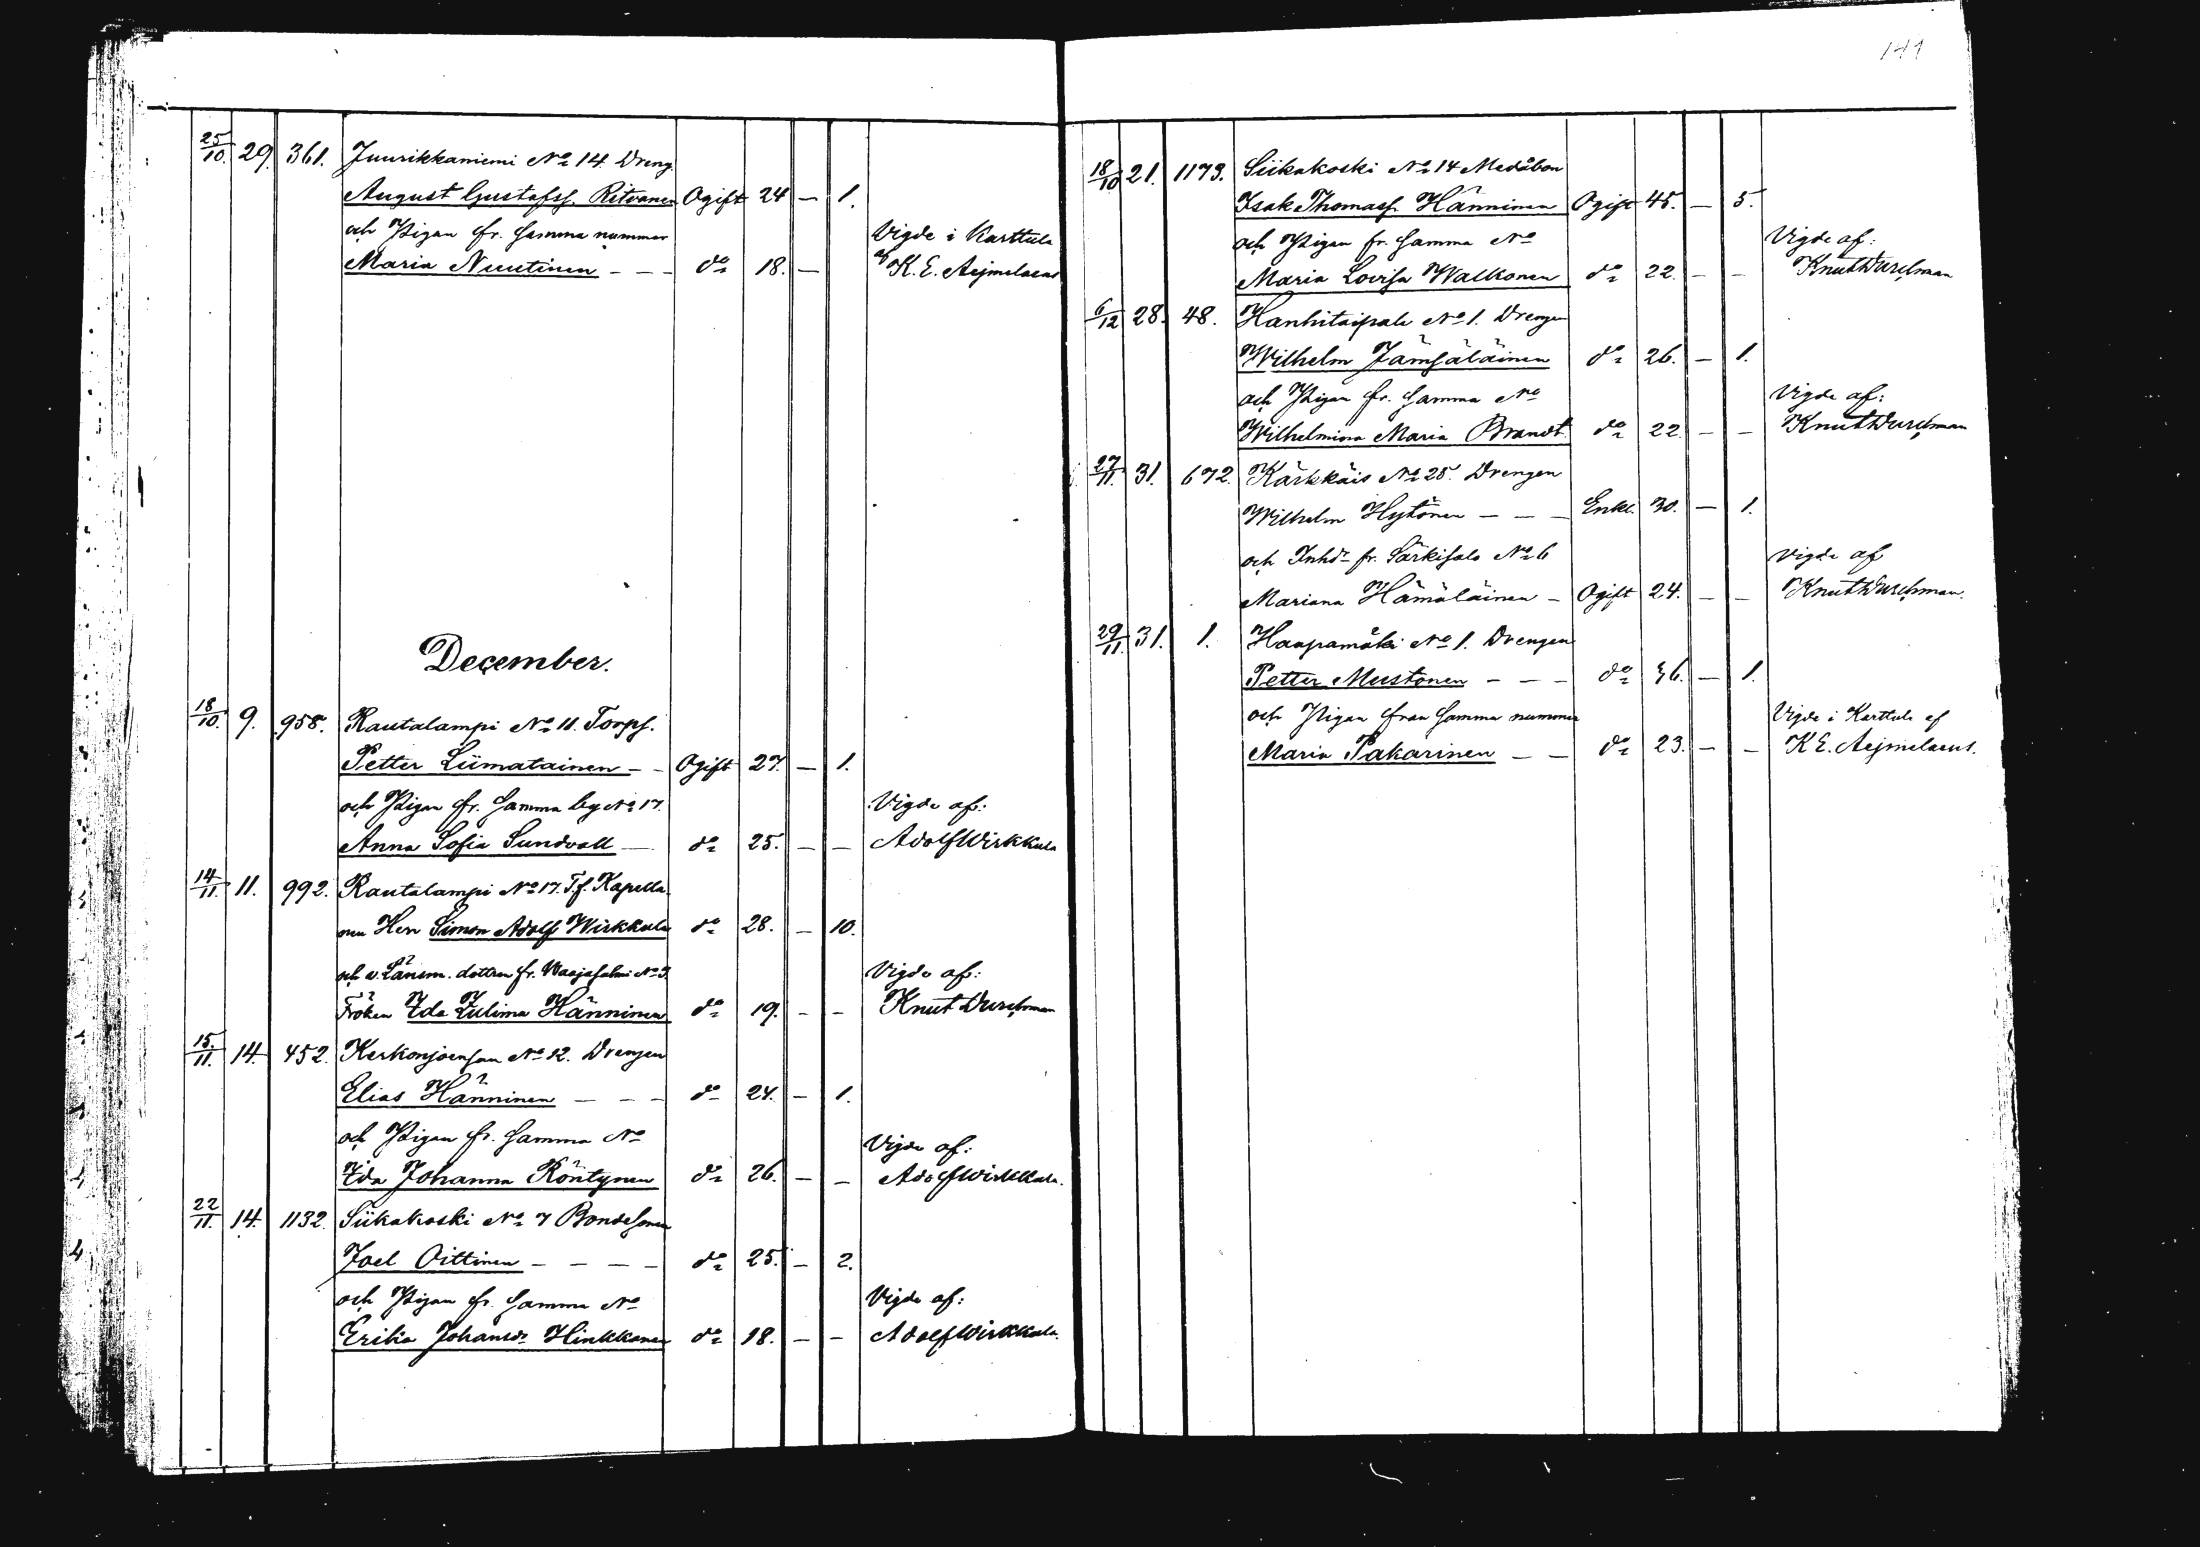 141
25/10. 29. 361. Juurikkaniemi No 14. Dreng
August Gustafss. Ritvanen Ogift 24 — 1.
och Pigan fr. samma nummer Vigde i Karttula
Maria Nuutinen — — — do 18. — af K. E. Aejmelaeus
December.
18/10. 9. 958. Rautalampi No 11. Torps.
Petter Liimatainen — — Ogift 27. — 1.
och Pigan fr. samma by No 17. Vigde af:
Anna Sofia Sundvall — do 25. — — Adolf Wirkkula
14/11. 11. 992. Rautalampi No 17. T.f. Kapella-
nen Herr Simon Adolf Wirkkula do 28. — 10.
och v. Länsm. dottren fr. Waajasalmi No 3. Vigde af:
Fröken Ida Zulima Hänninen do 19. — — Knut Durchman
15/11. 14. 452. Kerkonjoensuu No 12. Drengen
Elias Hänninen — — — do 24. — 1.
och Pigan fr. samma No Vigde af:
Ida Johanna Röntynen do 26. — — Adolf Wirkkula.
22/11. 14. 1132. Siikakoski No 7 Bondesonen
Joel Oittinen — — — — do 25. — 2.
och Pigan fr. samma No Vigde af:
Erika Johansdr Hinkkanen do 18. — — Adolf Wirkkula.
18/10 21. 1173. Siikakoski No 14 Medåbon
Isak Thomass. Hänninen Ogift 45. — 5.
och Pigan fr. samma No Vigde af:
Maria Lovisa Walkonen do 22. — — Knut Durchman
6/12 28. 48. Hanhitaipale No 1. Drengen
Wilhelm Jämsäläinen do 26. — 1.
och Pigan fr. samma No Vigde af:
Wilhelmina Maria Brandt do 22. — — Knut Durchman
27/11. 31. 672. Kärkkäis No 25. Drengen
Wilhelm Hytönen — — — Enkl. 30. — 1.
och Inhdr fr. Särkisalo No 6 Vigde af
Mariana Hämäläinen — Ogift 24. — — Knut Durchman.
29/11. 31. 1. Haapamäki No 1. Drengen
Petter Mustonen — — — do 36. — 1.
och Pigan från samma nummer Vigde i Karttula af
Maria Pakarinen — — do 23. — — K E. Aejmelaeus.